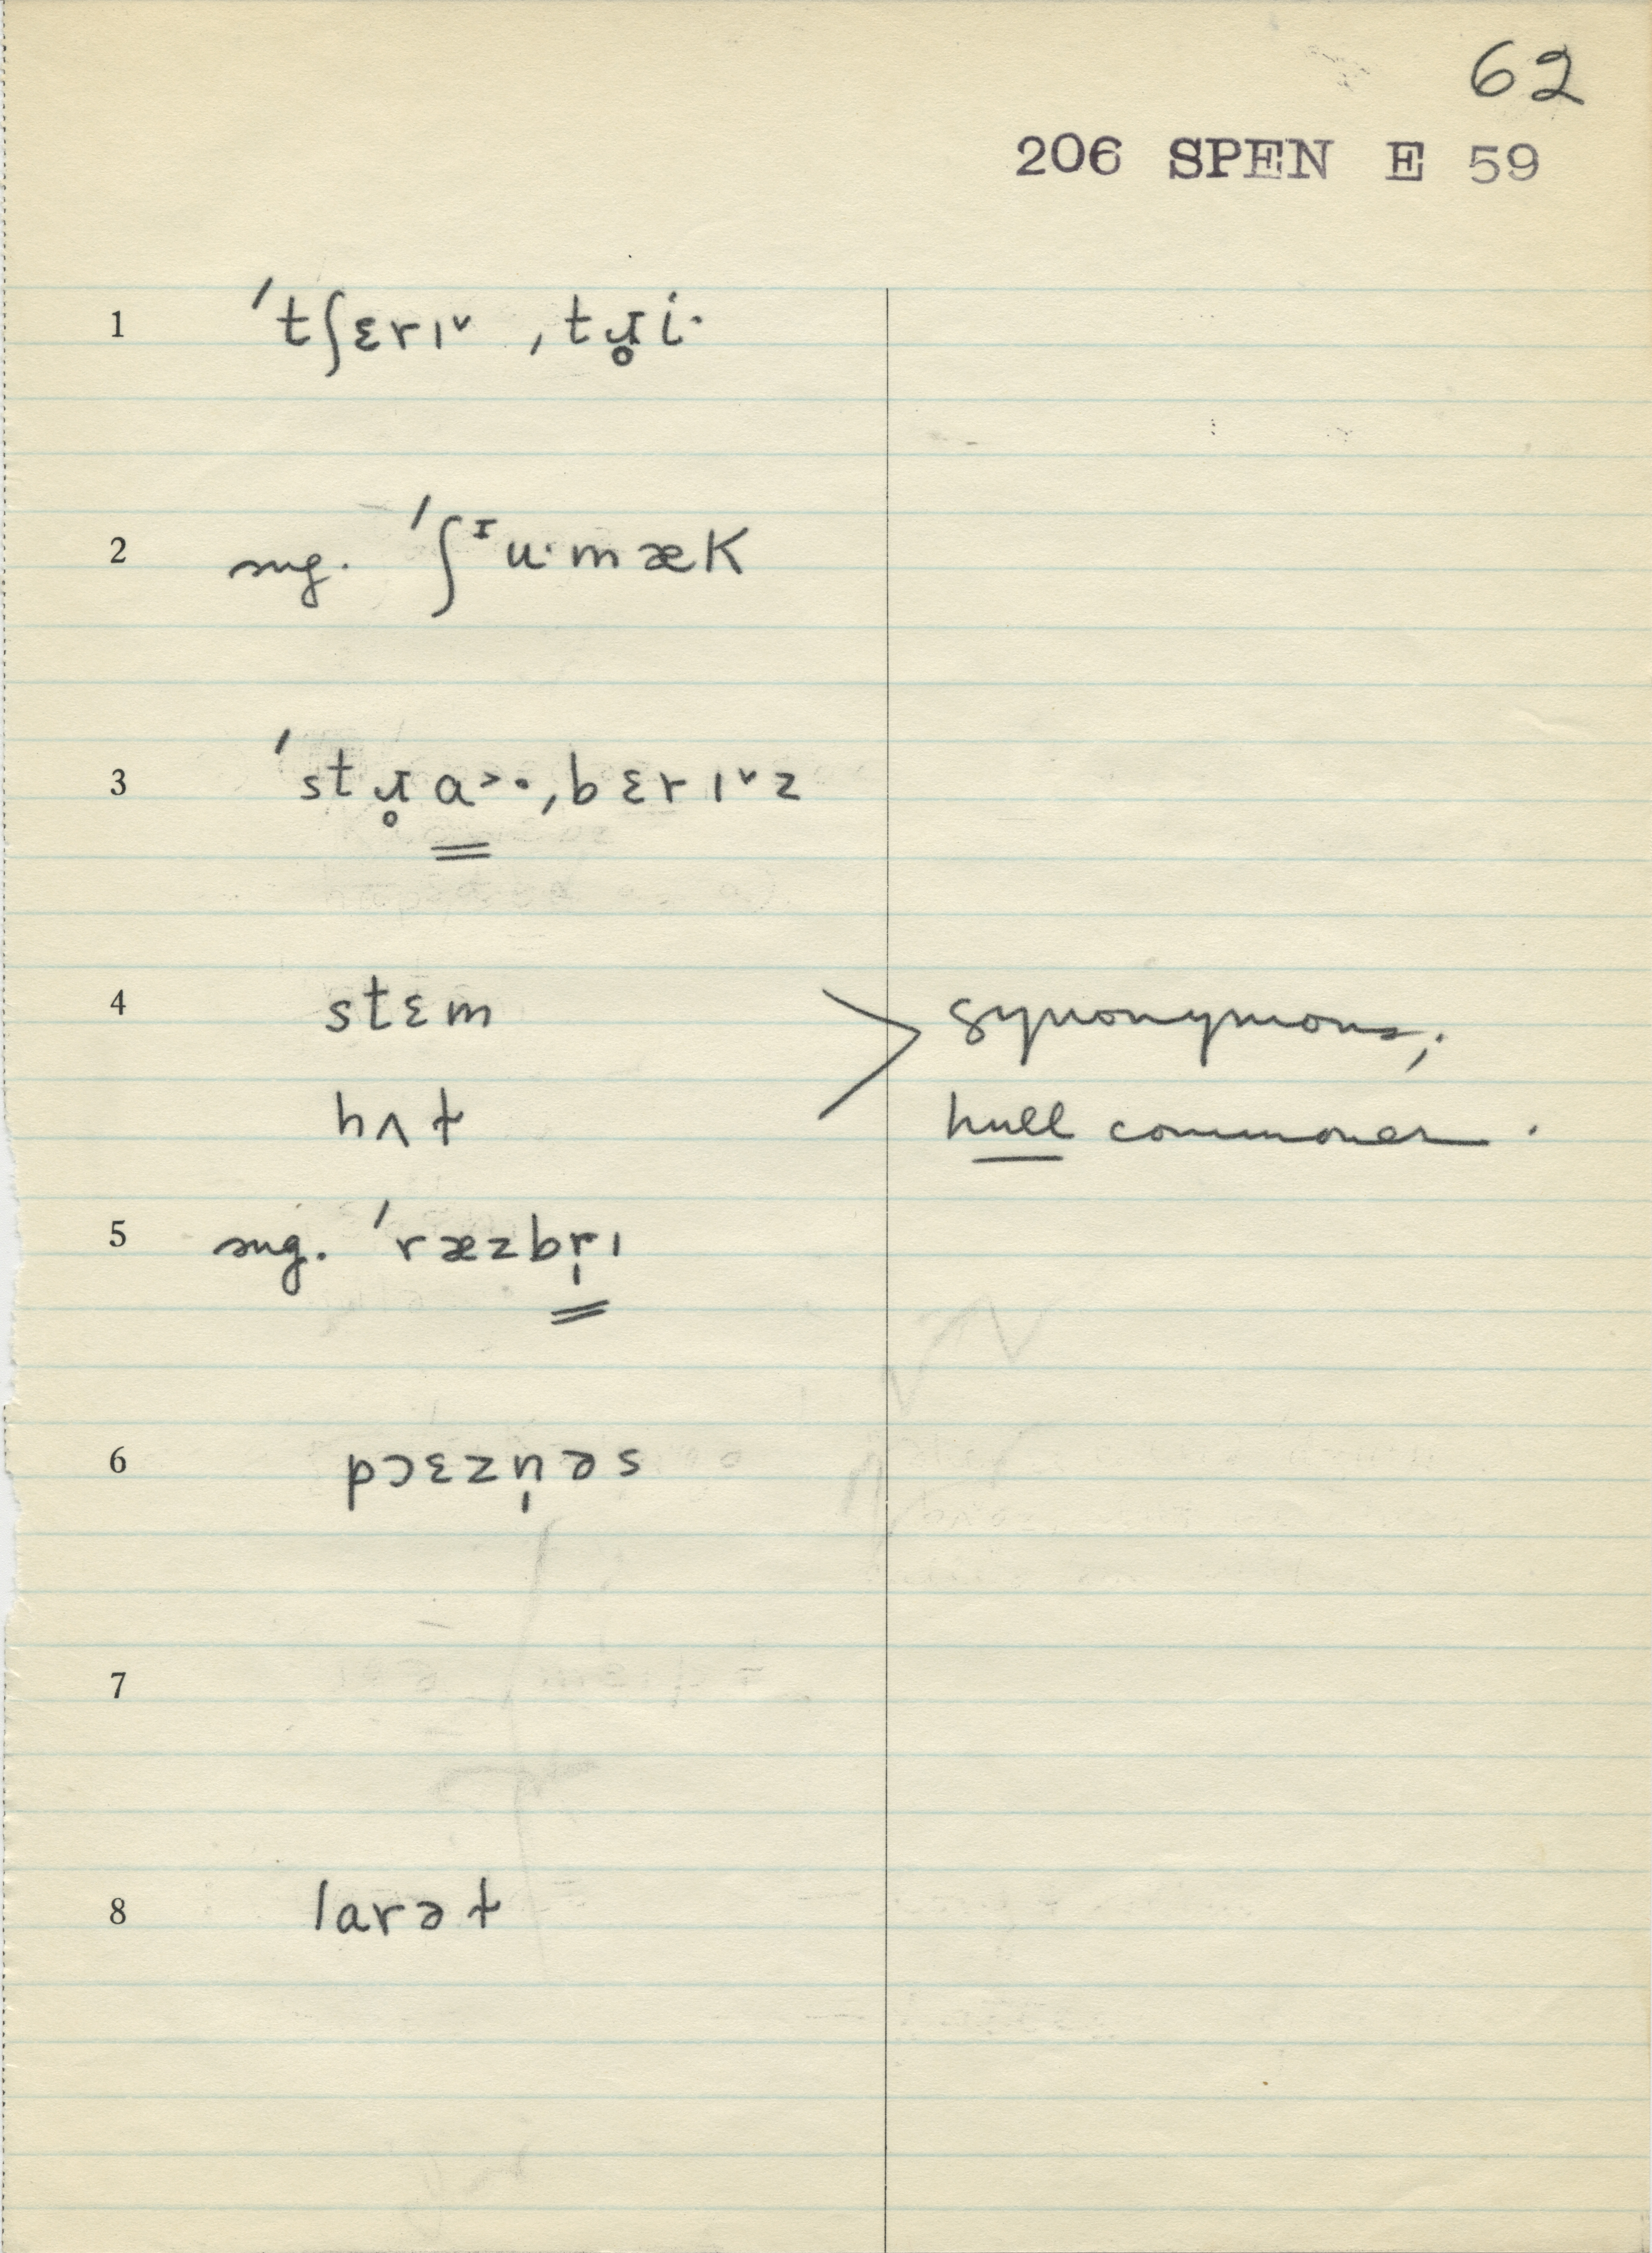 62
206 SPEN E 59
1 ˈtʃɛrɪ˅ ˌtɹ̥i·
2 sng. ˈʃᶦu·mæk
3 ˈstɹ̥a˃·ˌbɛrɪ˅z
4 stɛm synonymous;
hʌɫ hull commoner.
5 sng. ˈræzbr̩ɪ
6 pɔɛzn̩əs
7
8 larəɫ